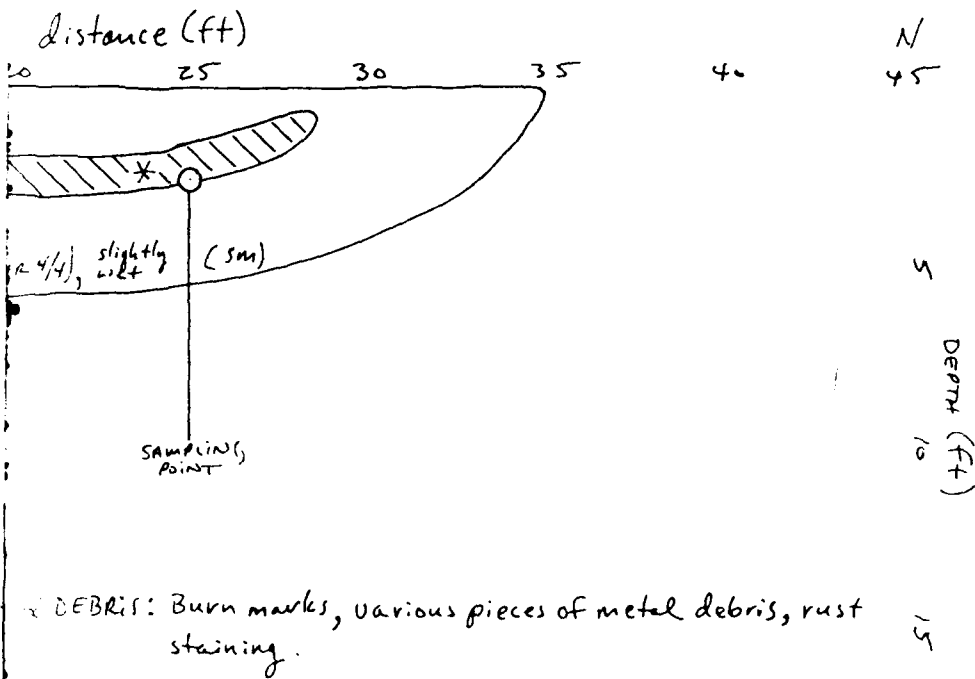 distance (ft)
N
20 25 30 35 40 45
*
R 4/4), slightly silt (SM)
5
DEPTH (ft)
SAMPLING
POINT
10
* DEBRIS: Burn marks, various pieces of metal debris, rust
staining.
15